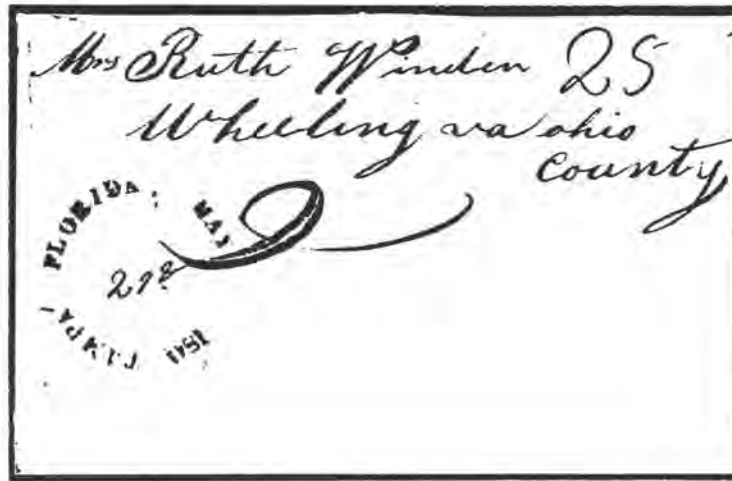 Mrs Ruth Winden 25
Wheeling va ohio
county
TAMPA FLORIDA: MAY
1841